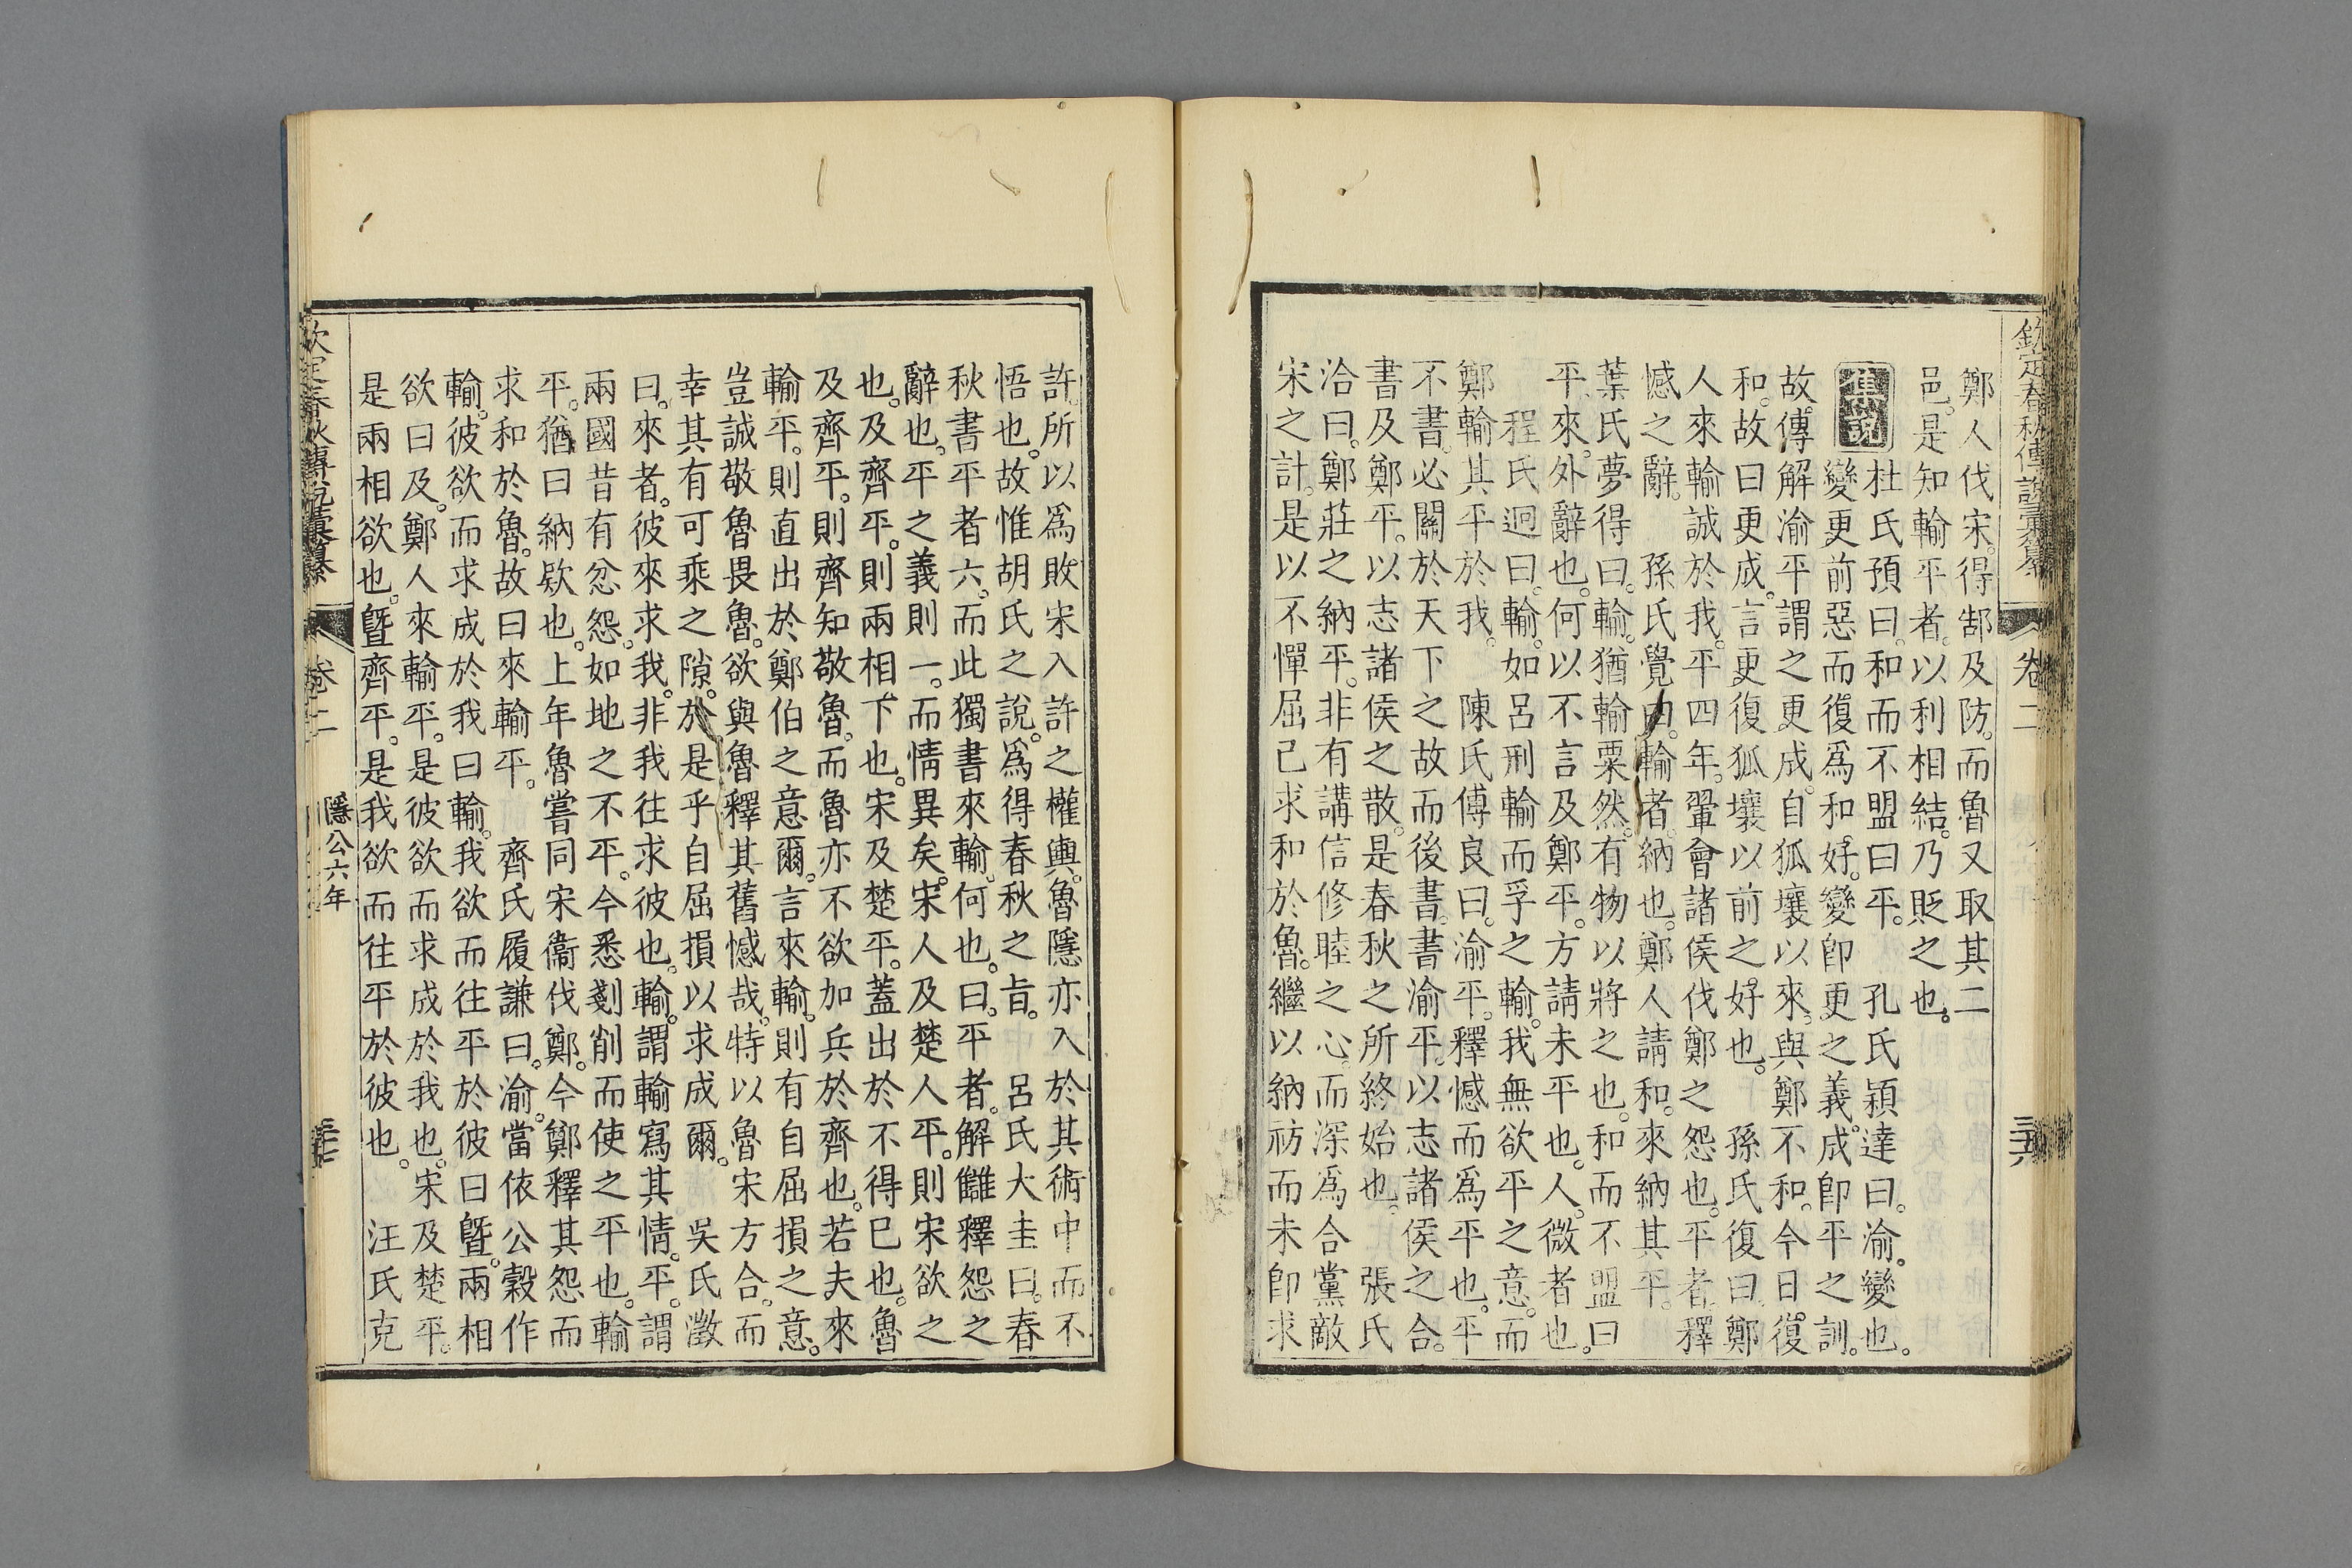 欽定春秋傳說彙纂
卷二
鄭人伐宋。得郜及防。而魯又取其二
邑。是知輸平者。以利相結。乃貶之也。
集說
杜氏預曰。和而不盟曰平。 孔氏穎達曰。渝。變也。
變更前惡而復爲和好。變卽更之義。成卽平之訓。
故傳解渝平謂之更成。自狐壤以來。與鄭不和。今日。復
和。故曰更成。言更復狐壤以前之好也。 孫氏復曰。鄭
人來輸誠於我。平四年。翬會諸侯伐鄭之怨也。平者。釋
憾之辭。 孫氏覺曰。輸者。納也。鄭人請和。來納其平。
葉氏夢得曰。輸。猶輸粟然。有物以將之也。和而不盟曰
平。來。外辭也。何以不言及鄭平。方請未平也。人。微者也。
程氏迥曰。輸。如呂刑輸而孚之輸。我無欲平之意。而
鄭輸其平於我。 陳氏傅良曰。渝平。釋憾而爲平也。平
不書。必關於天下之故而後書。書渝平。以志諸侯之合。
書及鄭平。以志諸侯之散。是春秋之所終始也。 張氏
洽曰。鄭莊之納平。非有講信修睦之心。而深爲合黨敵
宋之計。是以不憚屈已求和於魯。繼以納祊而未卽求
許。所以爲敗宋入許之權輿。魯隱亦入於其術中而不
悟也。故惟胡氏之說。爲得春秋之旨。 呂氏大圭曰。春
秋書平者六。而此獨書來輸。何也。曰。平者。解讎釋怨之
辭也。平之義則一。而情異矣。宋人及楚人平。則宋欲之
也。及齊平。則兩相下也。宋及楚平。蓋出於不得已也。魯
及齊平。則齊知敬魯。而魯亦不欲加兵於齊也。若夫來
輸平。則直出於鄭伯之意爾。言來輸。則有自屈損之意。
豈誠敬魯畏魯。欲與魯釋其舊憾哉。特以魯宋方合。而
幸其有可乘之隙。於是乎自屈損以求成爾。 吳氏澂
曰。來者。彼來求我。非我往求彼也。輸。謂輸寫其情。平。謂
兩國昔有忿怨。如地之不平。今悉剗削而使之平也。輸
平。猶曰納欵也。上年魯嘗同宋衞伐鄭。今鄭釋其怨而
求和於魯。故曰來輸平。 齊氏履謙曰。渝。當依公穀作
輸。彼欲而求成於我曰輸。我欲而往平於彼曰曁。兩相
欲曰及。鄭人來輸平。是彼欲而求成於我也。宋及楚平。
是兩相欲也。曁齊平。是我欲而往平於彼也。 汪氏克
欽定春秋傳說彙纂
卷二
隱公六年